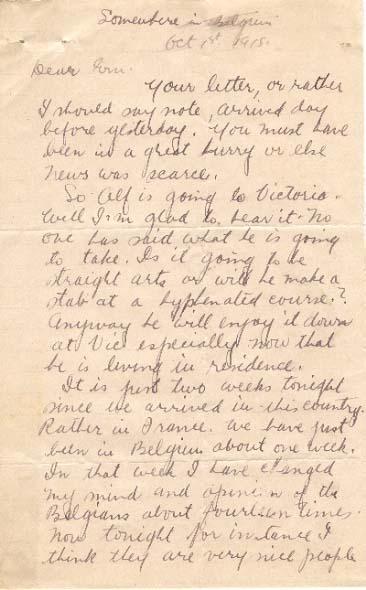 Somewhere in Belgium
Oct 1st 1915.
Dear Ern.
Your letter, or rather
I should say note, arrived day
before yesterday. You must have
been in a great hurry or else
news was scarce.
So Alf is going to Victoria.
Well I'm glad to hear it. No
one has said what he is going
to take. Is it going to be
straight arts or will he make a
stab at a hyphenated course?
Anyway he will enjoy it down
at Vic especially now that
he is living in residence.
It is just two weeks tonight
since we arrived in this country.
Rather in France. We have just
been in Belgium about one week.
In that week I have changed
my mind and opinion of the
Belgians about fourteen times.
Now tonight for instance I
think they are very nice people